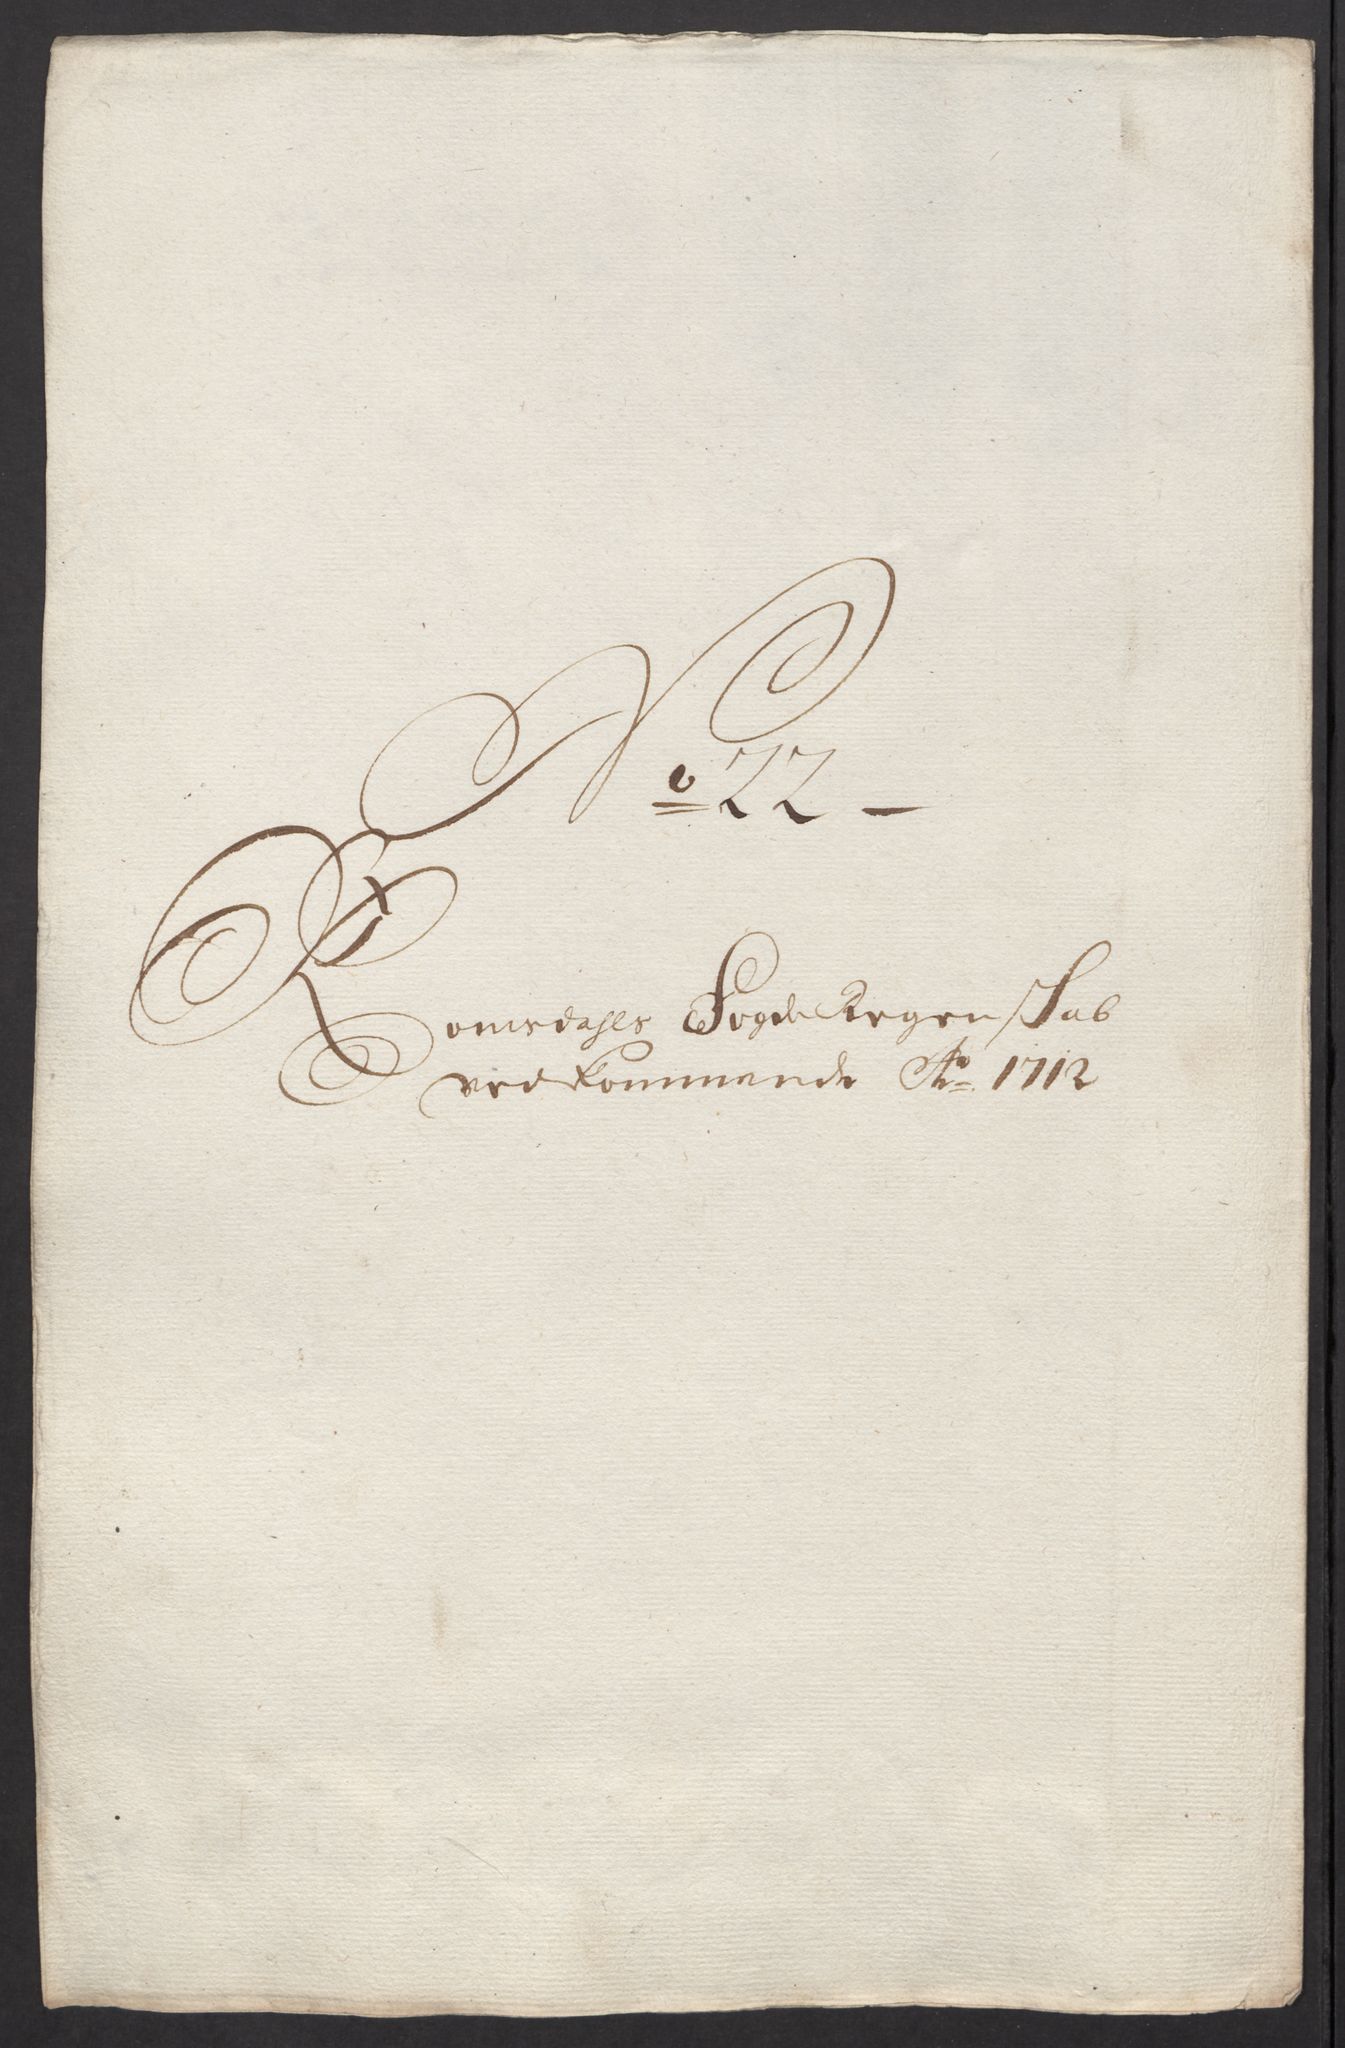 No 22 –
Romsdahls Fogde Regenskab
vedkommende Ao. 1712